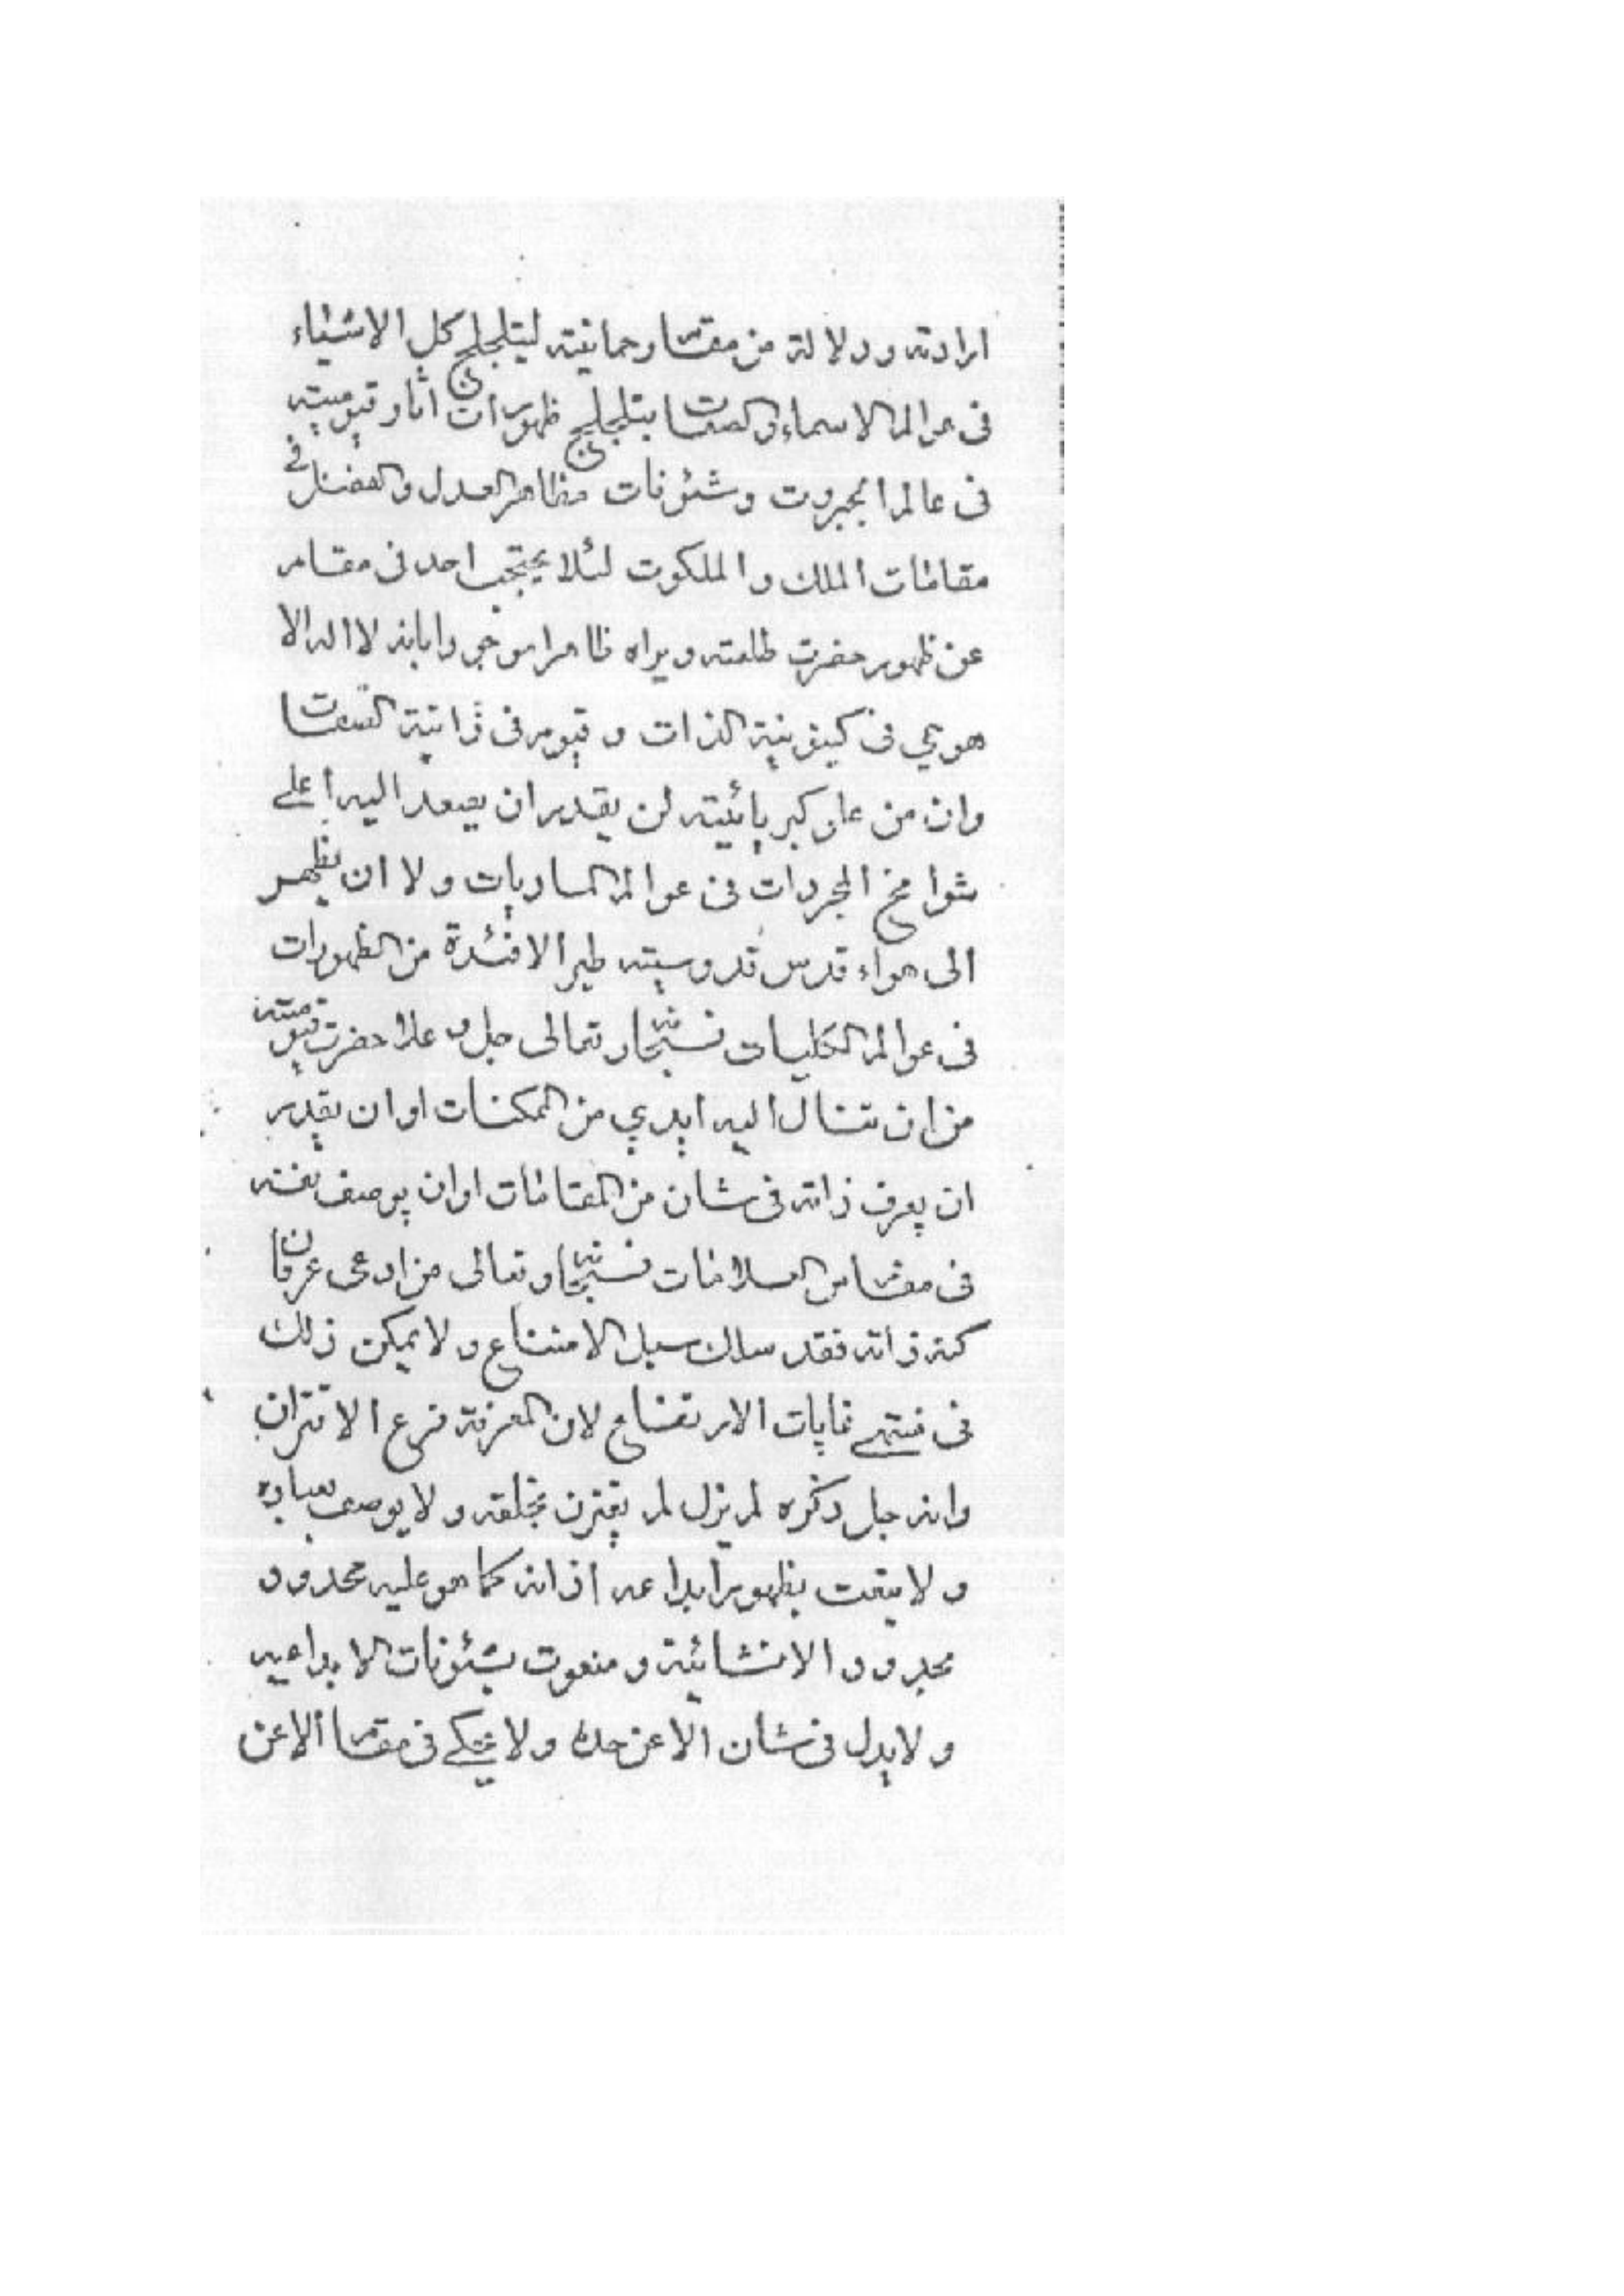 ارادته و دلالة من مقامات رحمانيته ليتلجلج كل الاشياء
فى عوالم الاسماء و الصفات بتلجلج ظهورات اثار قيوميته
فى عالم الجبروت و شئونات مظاهر العدل و الفضل فى
مقامات الملك و الملكوت لئلا يحتجب احد فى مقام
عن ظهور حضرت طلعته و يراه ظاهرا موجودا بانه لا اله الا
هو حي فى كينونية الذات و قيوم فى ذاتية الصفات
وان من علو كبريائيته لن يقدر ان يصعد اليه اعلى
شوامخ المجردات فى عوالم الماديات و لا ان يظهر
الى هواء قدس قدوسيته طير الافئدة من الظهورات
فى عوالم الكليات فسبحانه و تعالى جل و علا حضرت قيوميته
من ان تنال اليه ايدي من الممكنات او ان يقدر
ان يعرف ذاته فى شان من المقامات او ان يوصف نفسه
فى مقام العلامات فسبحانه و تعالى من ادعى عرفان
كنه ذاته فقد سلك سبل الامتناع و لا يمكن ذلك
فى منتهى غايات الارتفاع لان المعرفة فرع الاقتران
وانه جل ذكره لم يزل لم يقترن بخلقه و لا يوصف بعباده
و لا ينعت بظهور ابداعه اذ انه كما هو عليه محدود
بحدود الانشائية و منعوت بشئونات الابداعيه
و لا يدل فى شان الا عن حده و لا يحكى فى مقام الا عن